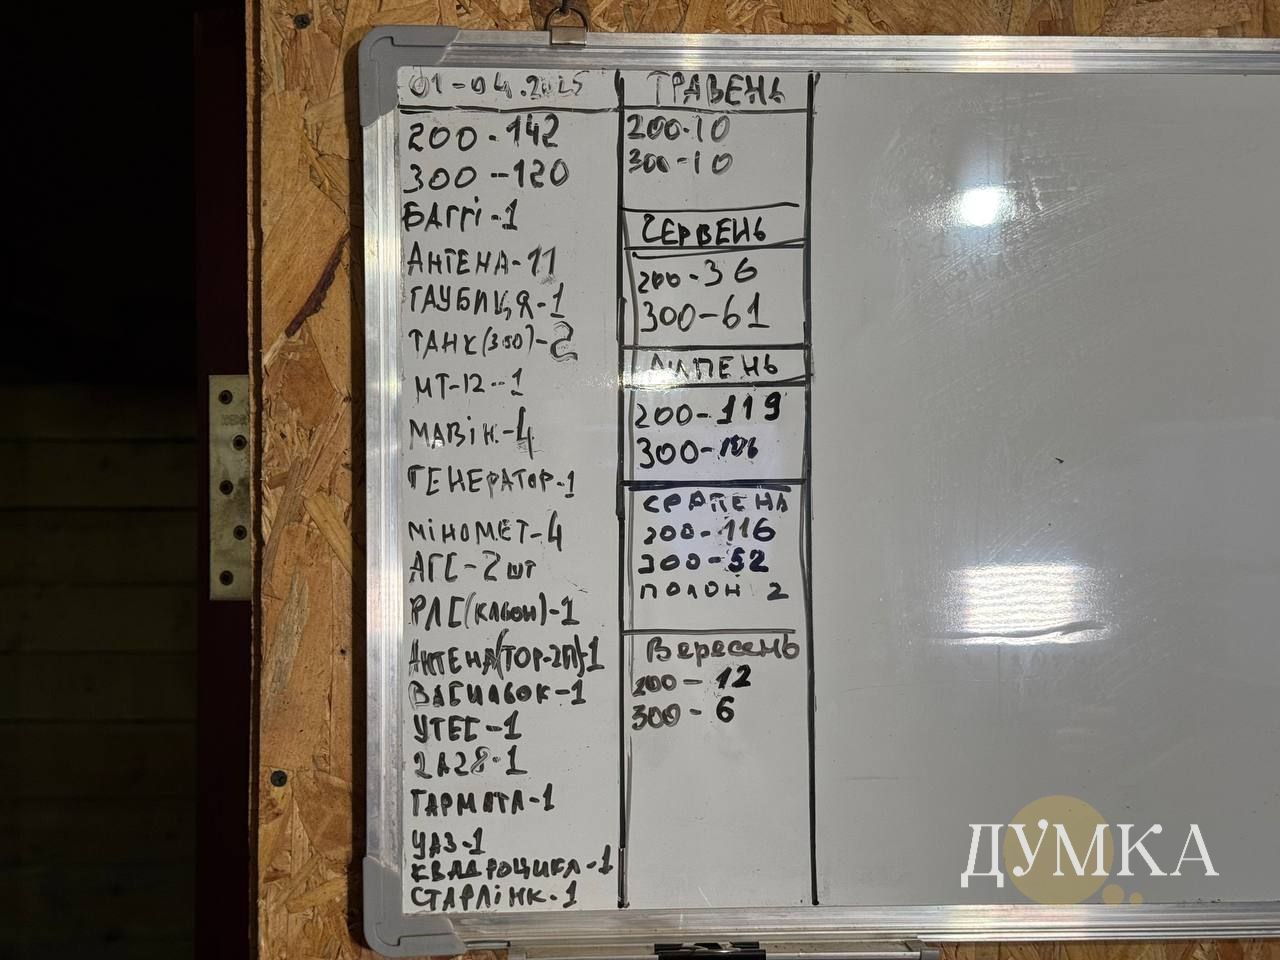 01-04.2025
200-142
300-120
БАГГІ-1
АНТЕНА-11
ГАУБИЦЯ-1
ТАНК(300)-2
МТ-12-1
МАВІК-4
ГЕНЕРАТОР-1
МІНОМЕТ-4
АГС-2 шт
РЛС(КЛЬОН)-1
АНТЕНА(ТОР-2П)-1
ВАСИЛЬОК-1
УТЕС-1
2А28-1
ГАРМАТА-1
УАЗ-1
КВАДРОЦИКЛ-1
СТАРЛІНК-1
ТРАВЕНЬ
200-10
300-10
ЧЕРВЕНЬ
200-36
300-61
ЛИПЕНЬ
200-119
300-
СРПЕНА
200-116
300-52
ПОЛОН 2
Вересень
200-12
300-6
ДУМКА